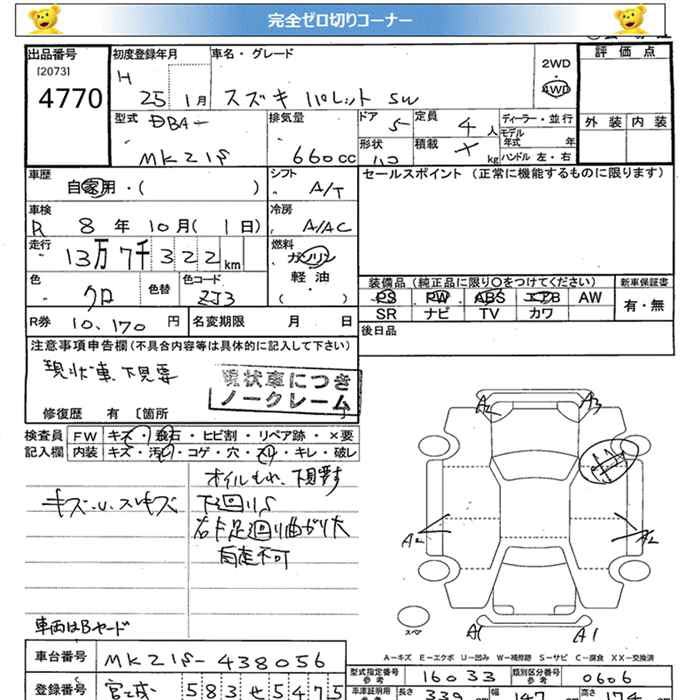 完全ゼロ切りコーナー
出品番号
[2073]
4770
初度登録年月
H 25 1月
車名・グレード
スズキ パレット SW
2WD
・
4WD
評価点
外装 内装
型式 DBA-
MK21S
排気量
660cc
ドア 5
定員 4人
形状 ハコ
積載 kg
ディーラー・並行
モデル年式 年
ハンドル 左・右
車歴
自家用・( )
シフト
A/T
セールスポイント(正常に機能するものに限ります)
車検
R 8年10月(1日)
冷房
A/AC
走行
13万7千322km
燃料
ガソリン
軽油
・( )
色
クロ
色替
色コード
ZJ3
装備品(純正品に限り○をつけてください)
PS PW ABS エアB AW
SR ナビ TV カワ
新車保証書
有・無
R券 10,170円
名変期限 月 日
後日品
注意事項申告欄(不具合内容等は具体的に記入して下さい)
現状車、下見要
現状車につき
ノークレーム
修復歴 有 〔箇所
検査員
記入欄
FW キズ・飛石・ヒビ割・リペア跡・×要
内装 キズ・汚れ・コゲ・穴・スリ・キレ・破レ
オイルもれ、下見要す
キズ・U・スリキズ
下回りS
右F足廻り曲がり大
自走不可
A2
A3
A2
A2
A1
A1
スペア
車両はBヤード
A-キズ E-エクボ U-凹み W-補修跡 S-サビ C-腐食 XX-交換済
車台番号 MK21S-438056
登録番号 宮城 583 せ 5475
型式指定番号 参考 16033
類別区分番号 参考 0606
車庫証明用 参考
長さ 339
幅 147
高さ 174